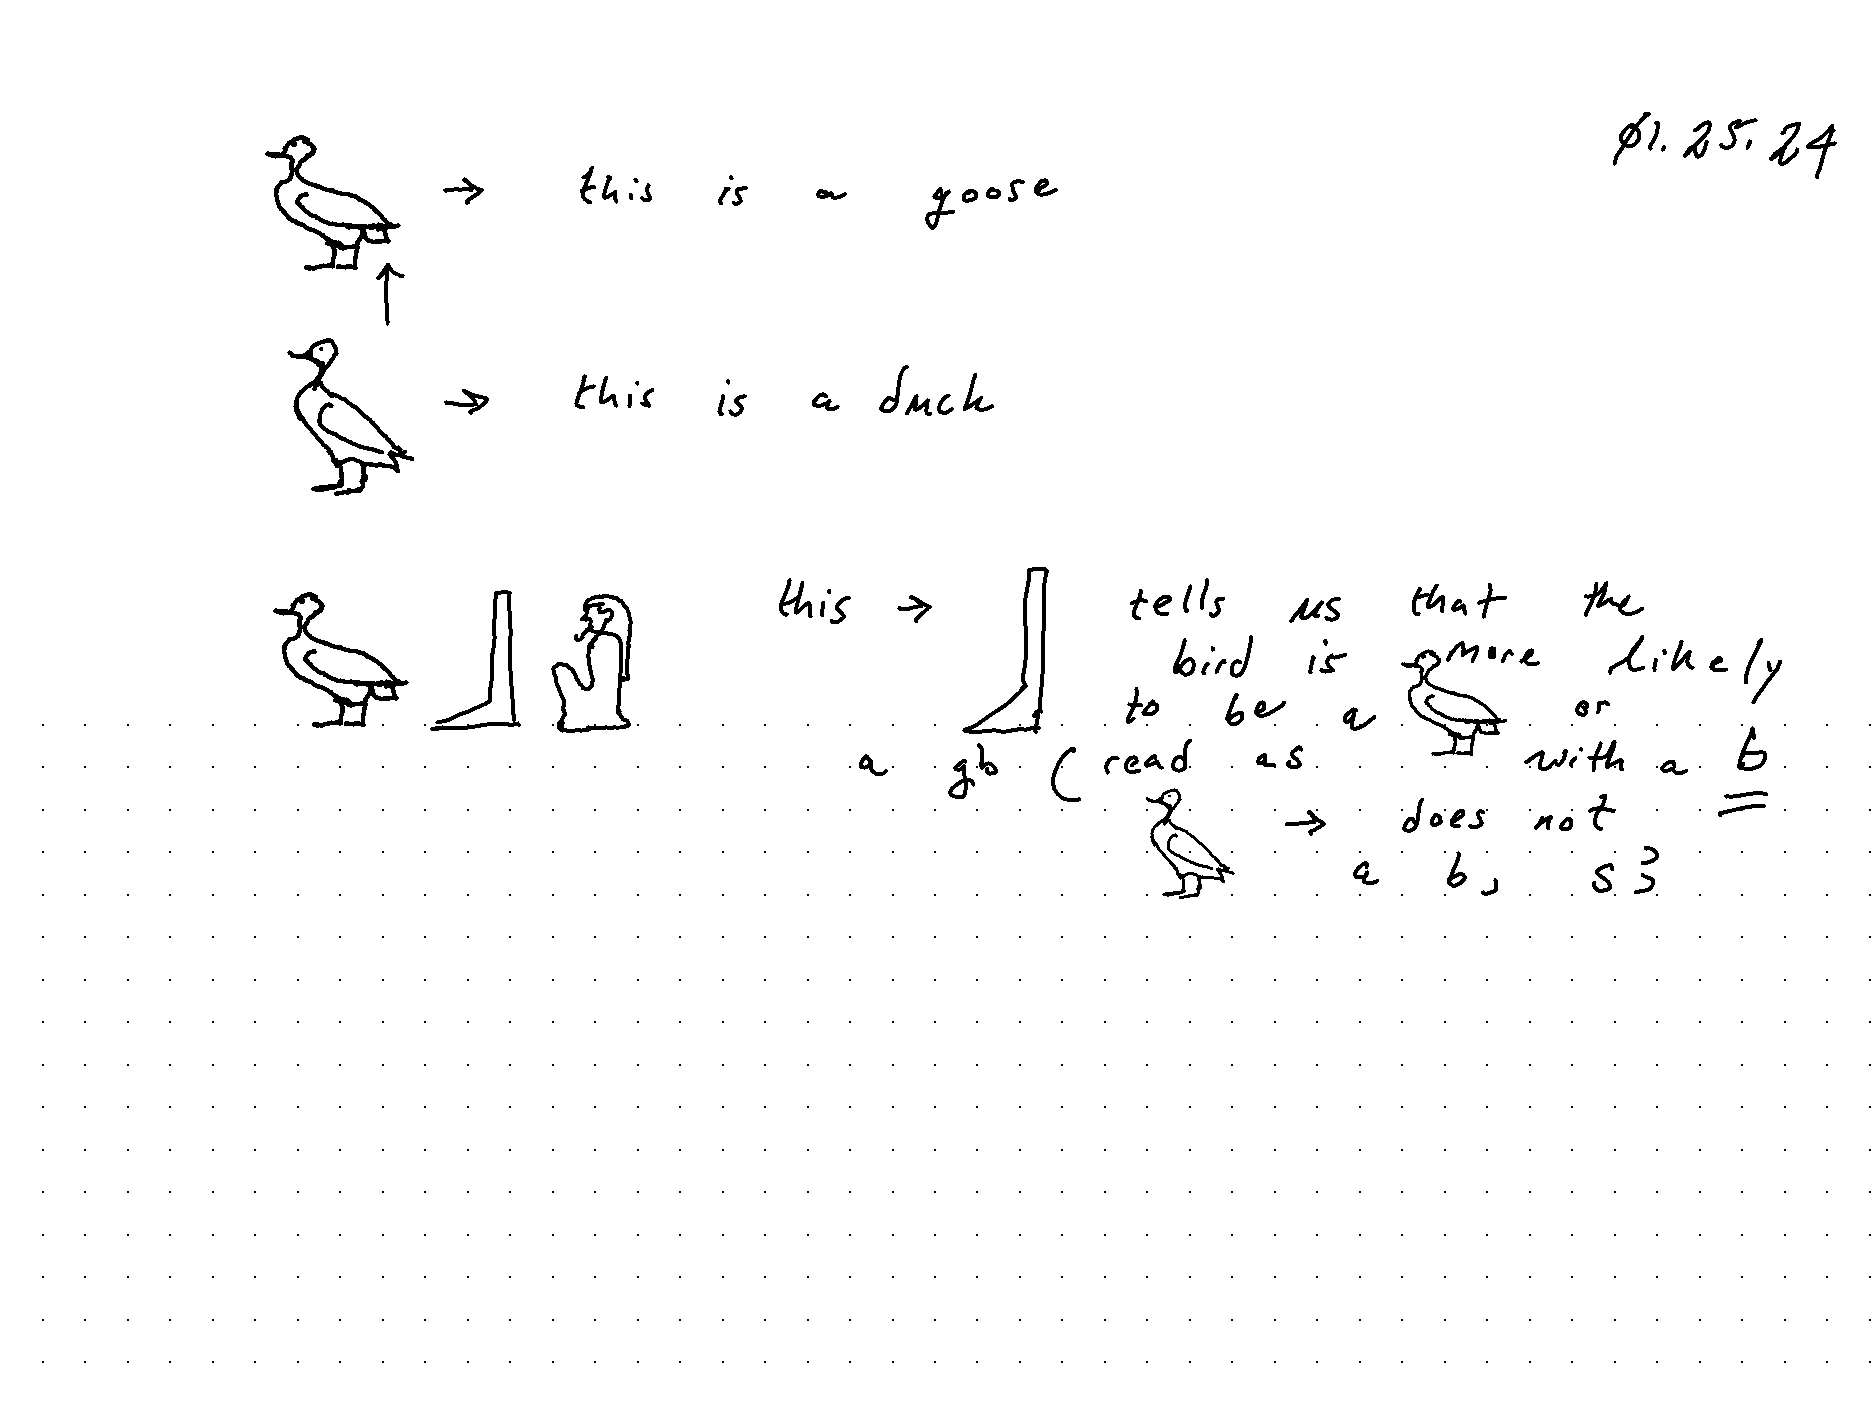 01.25.24
𓅬 → this is a goose
↑
𓅭 → this is a duck
𓅬𓃀𓀭 this → 𓃀 tells us that the
bird is more likely
to be a 𓅬 or
a gb (read as with a b
𓅭 → does not
a b, sꜣ